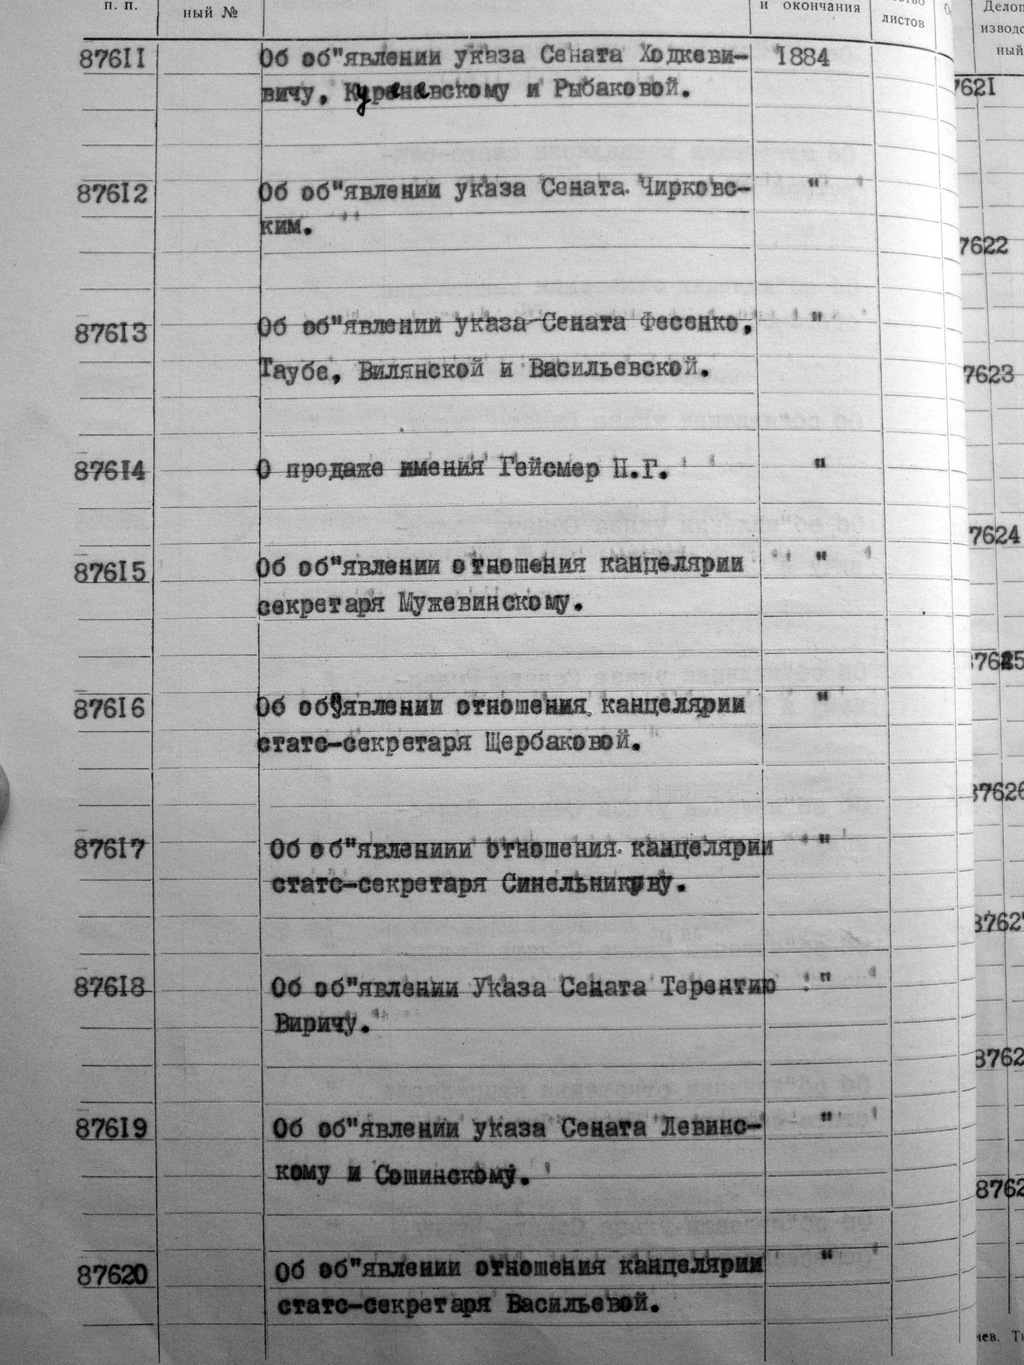 п. п.
ный №
и окончания
листов
87611 Об об"явлении указа Сената Ходкеви- 1884
вичу, Курачевскому и Рыбаковой.
87612 Об об"явлении указа Сената Чирковс- "
ким.
87613 Об об"явлении указа Сената Фесенко, "
Таубе, Вилянской и Васильевской.
87614 О продаже имения Гейсмер П.Г. "
87615 Об об"явлении отношения канцелярии "
секретаря Мужевинскому.
87616 Об об"явлении отношения канцелярии "
статс-секретаря Щербаковой.
87617 Об об"явлениии отношения канцелярии "
статс-секретаря Синельникову.
87618 Об об"явлении Указа Сената Терентию "
Виричу.
87619 Об об"явлении указа Сената Левинс- "
кому и Сошинскому.
87620 Об об"явлении отношения канцелярии "
статс-секретаря Васильевой.
Делоп
изводс
ный
7621
7622
7623
7624
7625
87626
8762
8762
8762